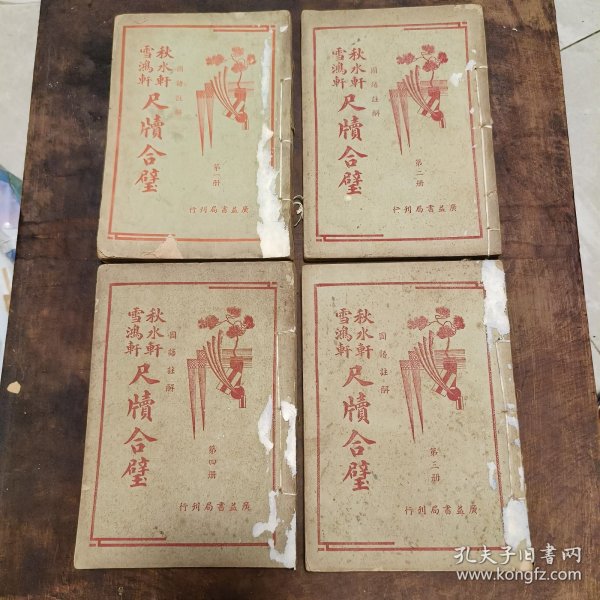 秋水軒
雪鴻軒
尺牘合璧
國語註解
第一册
廣益書局刊行
秋水軒
雪鴻軒
尺牘合璧
國語註解
第二册
廣益書局刊行
秋水軒
雪鴻軒
尺牘合璧
國語註解
第四册
廣益書局刊行
秋水軒
雪鴻軒
尺牘合璧
國語註解
第三册
廣益書局刊行
孔夫子旧书网
www.kongfz.com